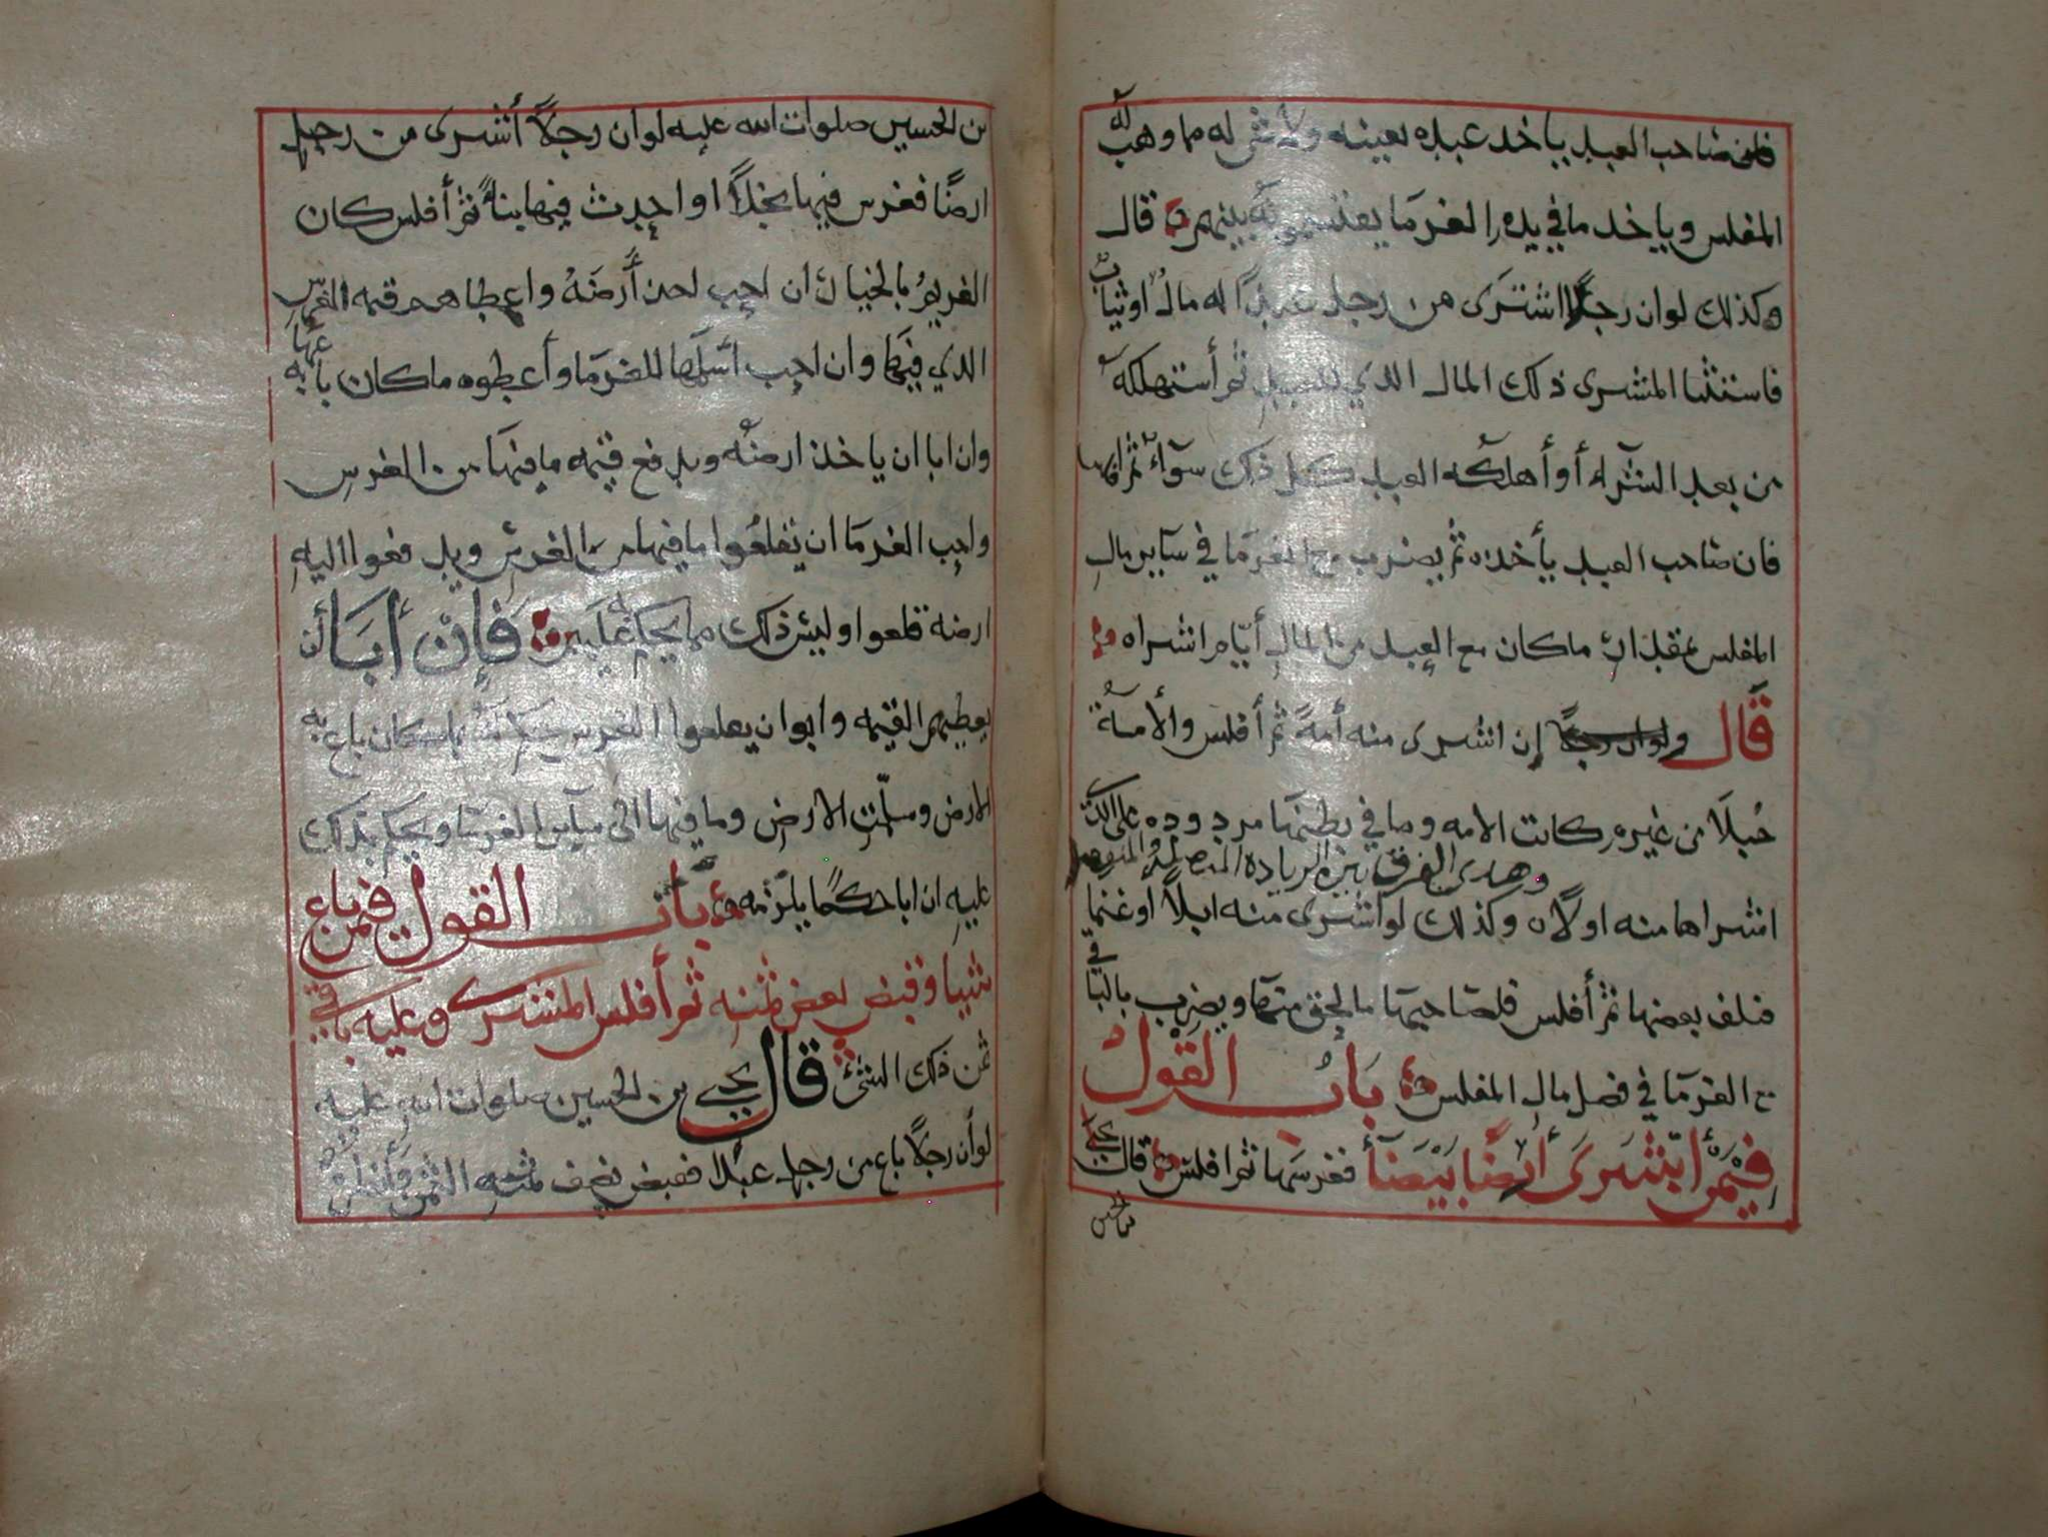 فان صاحب العبد ياخد عبده بعينه ولا شى له مما وهب له
المفلس وياخد ما في يده الغرما يقتسمونه بينهم قال
وكذلك لوان رجلًا اشترى من رجل عبدًا له مال اوثياب
فاستثنا المشرى ذلك المال الدي للعبد ثم أستهلكه
من بعد الشرآء أو أهلكه العبد كل ذلك سوآء ثم
فان صاحب العبد يأخده ثم يضرب مع الغرما في ساير مال
المفلس بمقدار ما كان مع العبد من المال أيام اشراه
قال ولوان رجلا إن اشرى منه أمةً ثم أفلس والأمة
حُبلَا من غيره كانت الامه وما في بطنها مردوده على الذي
وهدى الفرق بين الزياده المتصلة والمنفصل
اشراها منه اولاه وكذلك لوا شرى منه ابلًا اوغنما
فتلف بعضها ثم أفلس فلصاحبها ما لحق منها ويضرب بالباقي
مع الغرما في فضل مال المفلس باب القول
فيمن اشترى أرضًا بيضَآء فغرسها ثم افلس قال يحي
بن الحسين
بن الحسين صلوات الله عليه لوان رجلًا أشرى من رجل
ارضًا فغرس فيها نخلًا او احدث فيها بناءً ثم أفلس كان
الغريم بالخيار ان احب اخذ أرضَهُ واعطاهم قيمه الغرس
الدي فيها وان احب اسلمها للغرما وأعطوه ما كان باعها به
وان ابا ان ياخذ ارضه ويدفع قيمه ما فيها من الغرس
واحب الغرما ان يقلعوا ما فيها من الغرس ويدفعوا اليه
ارضه قلعوا وليس ذلك مما يحكم به عليهم فإن أبَا أن
يعطيهم القيمه وابوا ان يقلعوا الغرس حكم له بما كان باع به
الارض وسلمت الارض وما فيها الى ساير الغرما ويحكم بذلك
عليه ان ابا حكمًا يلزمه باب القول فيمن باع
شيا وقبض بعض ثمنه ثم أفلس المشترى وعليه باقي
ثمن ذلك الشئ قال يحيى بن الحسين صلوات الله عليه
لوأن رجلًا باع من رجل عبدًا فقبض نصف ثمنه